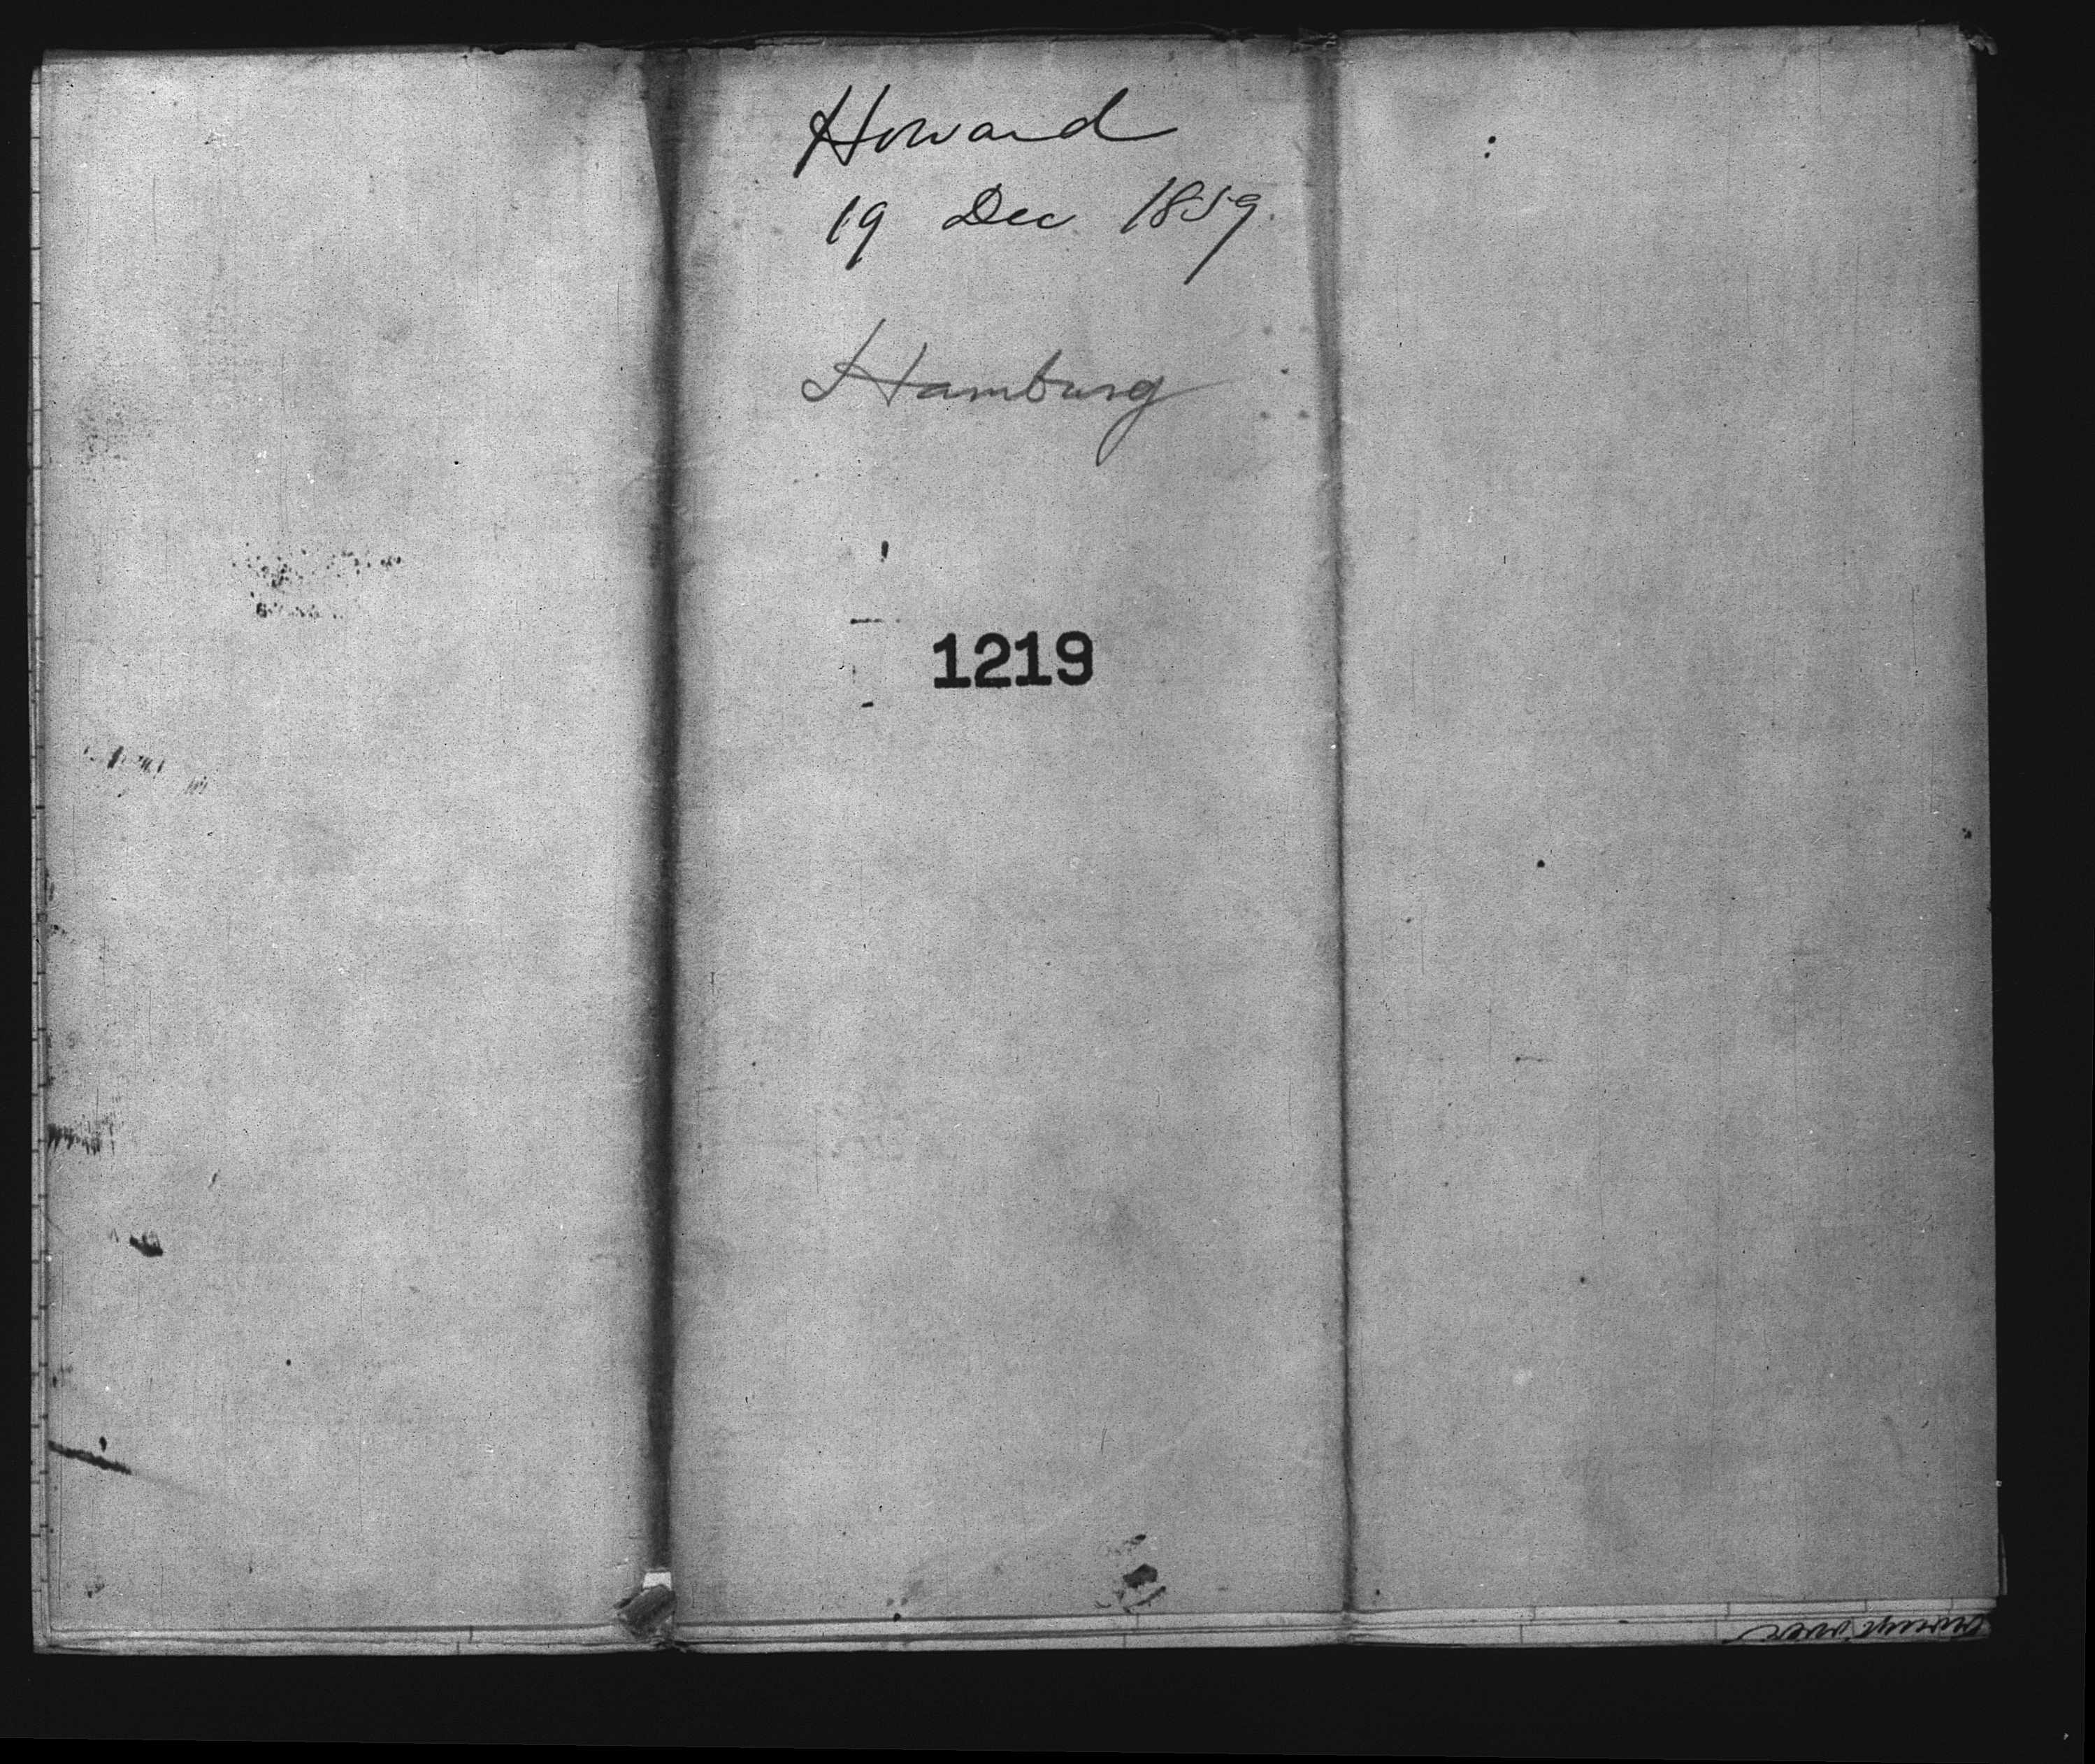 Howard
19 Dec 1859.
Hamburg
1219